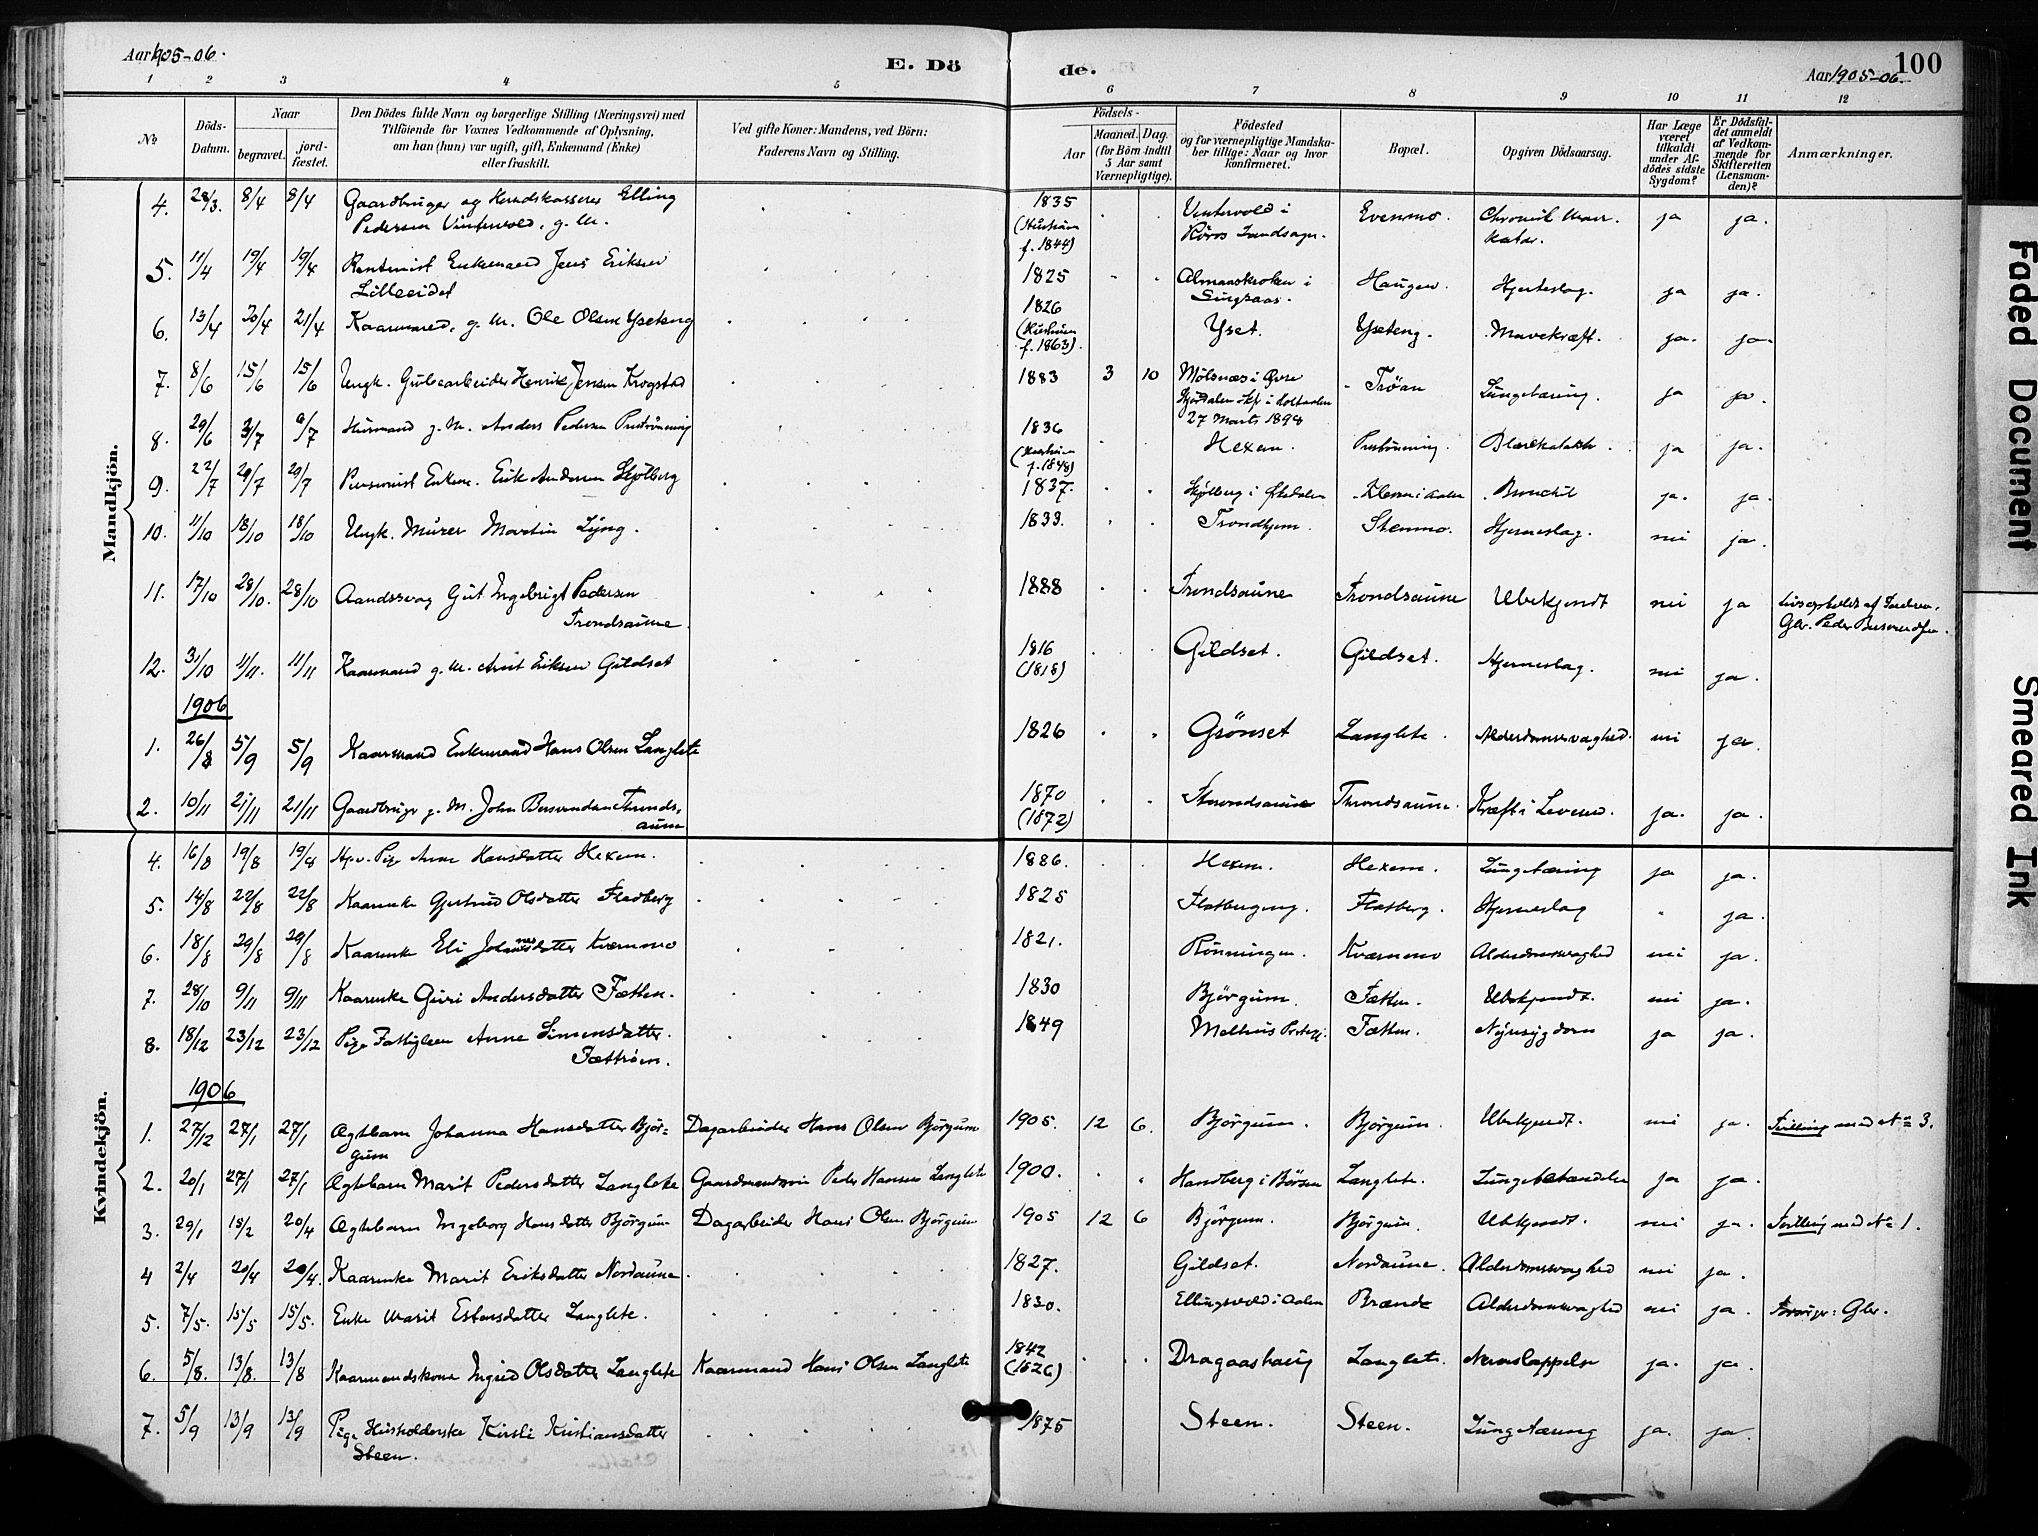 Aar 1905-06.
E. Dö
de.
Aar 1905-06.
100
1 2 3 4 5 6 7 8 9 10 11 12
No
Döds-Datum.
Naar
begravet.
jordfæstet.
Den Dödes fulde Navn og borgerlige Stilling (Næringsvei) med
Tilföiende for Voxnes Vedkommende af Oplysning,
om han (hun) var ugift, gift, Enkemand (Enke)
eller fraskilt.
Ved gifte Koner: Mandens, ved Börn:
Faderens Navn og Stilling.
Födsels-
Aar
Maaned. Dag.
(for Börn indtil
5 Aar samt
Værnepligtige).
Födested
og for værnepligtige Mandska-
ber tillige: Naar og hvor
konfirmeret.
Bopæl.
Opgiven Dödsaarsag.
Har Læge
været
tilkaldt
under Af-
dödes sidste
Sygdom?
Er Dödsfal-
det anmeldt
af Vedkom-
mende for
Skifteretten
(Lensman-
den)?
Anmærkninger.
Mandkjön.
4. 28/3. 8/4 8/4 Gaardbruger og Elling 1835 Vintervold i Evenmo. Chronisk ja ja.
Pedersen Vintervold, g. M. f. 1844) Röros Landsogn. katar.
5. 11/4 19/4 19/4 Enkemand Jens Eriksen 1825 i Haugen. Hjerteslag. ja ja.
Lilleeidet Singsaas.
6. 13/4 20/4 21/4 Kaarmand, g. M. Ole Olsen Yseteng 1826 f. 1863). Yset. Yseteng. Mavekræft. ja. ja.
7. 8/6 15/6 15/6 Ungk. Henrik Jensen Krogstad 1883 3 10 i Øvre Tröan Lungetæring. ja ja.
27 Marts 1898
8. 29/6 3/7 9/7 Husmand g. M. Anders Pedersen 1836 f. 1848) Hexem. Blærekatarrh. ja ja.
9. 22/7 29/7 29/7 Pensionist Enkem. Erik Andersen Skjölberg 1837. Skjölberg i i Aalen Bronchit ja. ja.
10. 11/10 18/10 18/10 Ungk. Murer Martin Lyng. 1833. Trondhjem. Stenmo. Hjerneslag. nei ja.
11. 17/10 28/10. 28/10 Aandssvag Gut Ingebrigt Pedersen 1888 Trondsaune Trondsaune Ubekjendt nei ja
Trondsaune. Gbr. Peder
12. 31/10 11/11. 11/11 Kaarmand g. M. Arnt Eriksen Gildset 1816 (1818) Gildset. Gildset. Hjerneslag. nei ja.
1906
1. 26/8 5/9 5/9 Kaarmand Enkemand Hans Olsen Langlete 1826 Grönset Langlete. Alderdomssvaghed. nei ja.
2. 10/11 21/11 21/11 Gaardbruger g. M. John Bersvendsen Thronds- 1870 (1872) Throndsaune Throndsaune. Kræft i Leveren. ja. ja.
aune
Kvindekjön.
4. 16/8 19/8 19/8 Pige Anne Hansdatter Hexem. 1886. Hexem. Hexem. Lungetæring ja ja.
5. 14/8 22/8 22/8 Kaarenke Gjertrud Olsdatter Fladberg 1825 Flatbergeng. Flatberg. Hjerneslag " ja.
6. 18/8 29/8 29/8 Kaarenke Eli Johannesdatter Kværnmo 1821. Rönningen. Kværnmo Alderdomssvaghed nei ja.
7. 28/10 9/11 9/11 Kaarenke Guri Andersdatter Fætten. 1830 Bjørgum. Fætten. Ubekjendt. nei ja.
8. 18/12 23/12 23/12 Pige Fattiglem Anne Simensdatter 1849 Melhus Fætten. Nyresygdom ja ja.
Fættröen.
1906
1. 27/12 27/1 27/1 Ægtbarn Johanna Hansdatter Bjør- Dagarbeider Hans Olsen Bjørgum 1905. 12 6. Bjørgum. Bjørgum. Ubekjendt. nei ja. Tvilling med No 3.
gum
2. 20/1 27/1 27/1 Ægtebarn Marit Pedersdatter Langlete Peder Hansen Langlete 1900. i Börsen Langlete. Lungebetændelse ja ja.
3. 29/1 18/2 20/4 Ægtebarn Ingeborg Hansdatter Bjørgum Dagarbeider Hans Olsen Bjørgum 1905 12 6 Bjørgum. Bjørgum. Ubekjendt. nei ja. Tvilling med No 1.
4 2/4 20/4 20/4. Kaarenke Marit Eriksdatter Nordaune. 1827. Gildset. Nordaune. Alderdomssvaghed nei ja.
5. 7/5. 15/5 15/5. Enke Marit Estensdatter Langlete. 1830. Ellingsvold i Aalen Alderdomssvaghed nei ja. Gbr.
6. 5/8. 13/8. 13/8 Kaarmandskone Ingrid Olsdatter Langlete Kaarmand Hans Olsen Langlete 1842 (1826) Dragaashaug Langlete. ja. ja.
7. 5/9 13/9 13/9 Pige Husholderske Kirsti Kristiansdatter 1875 Steen. Steen. Lungetæring ja. ja.
Steen.
Faded Document
Smeared Ink